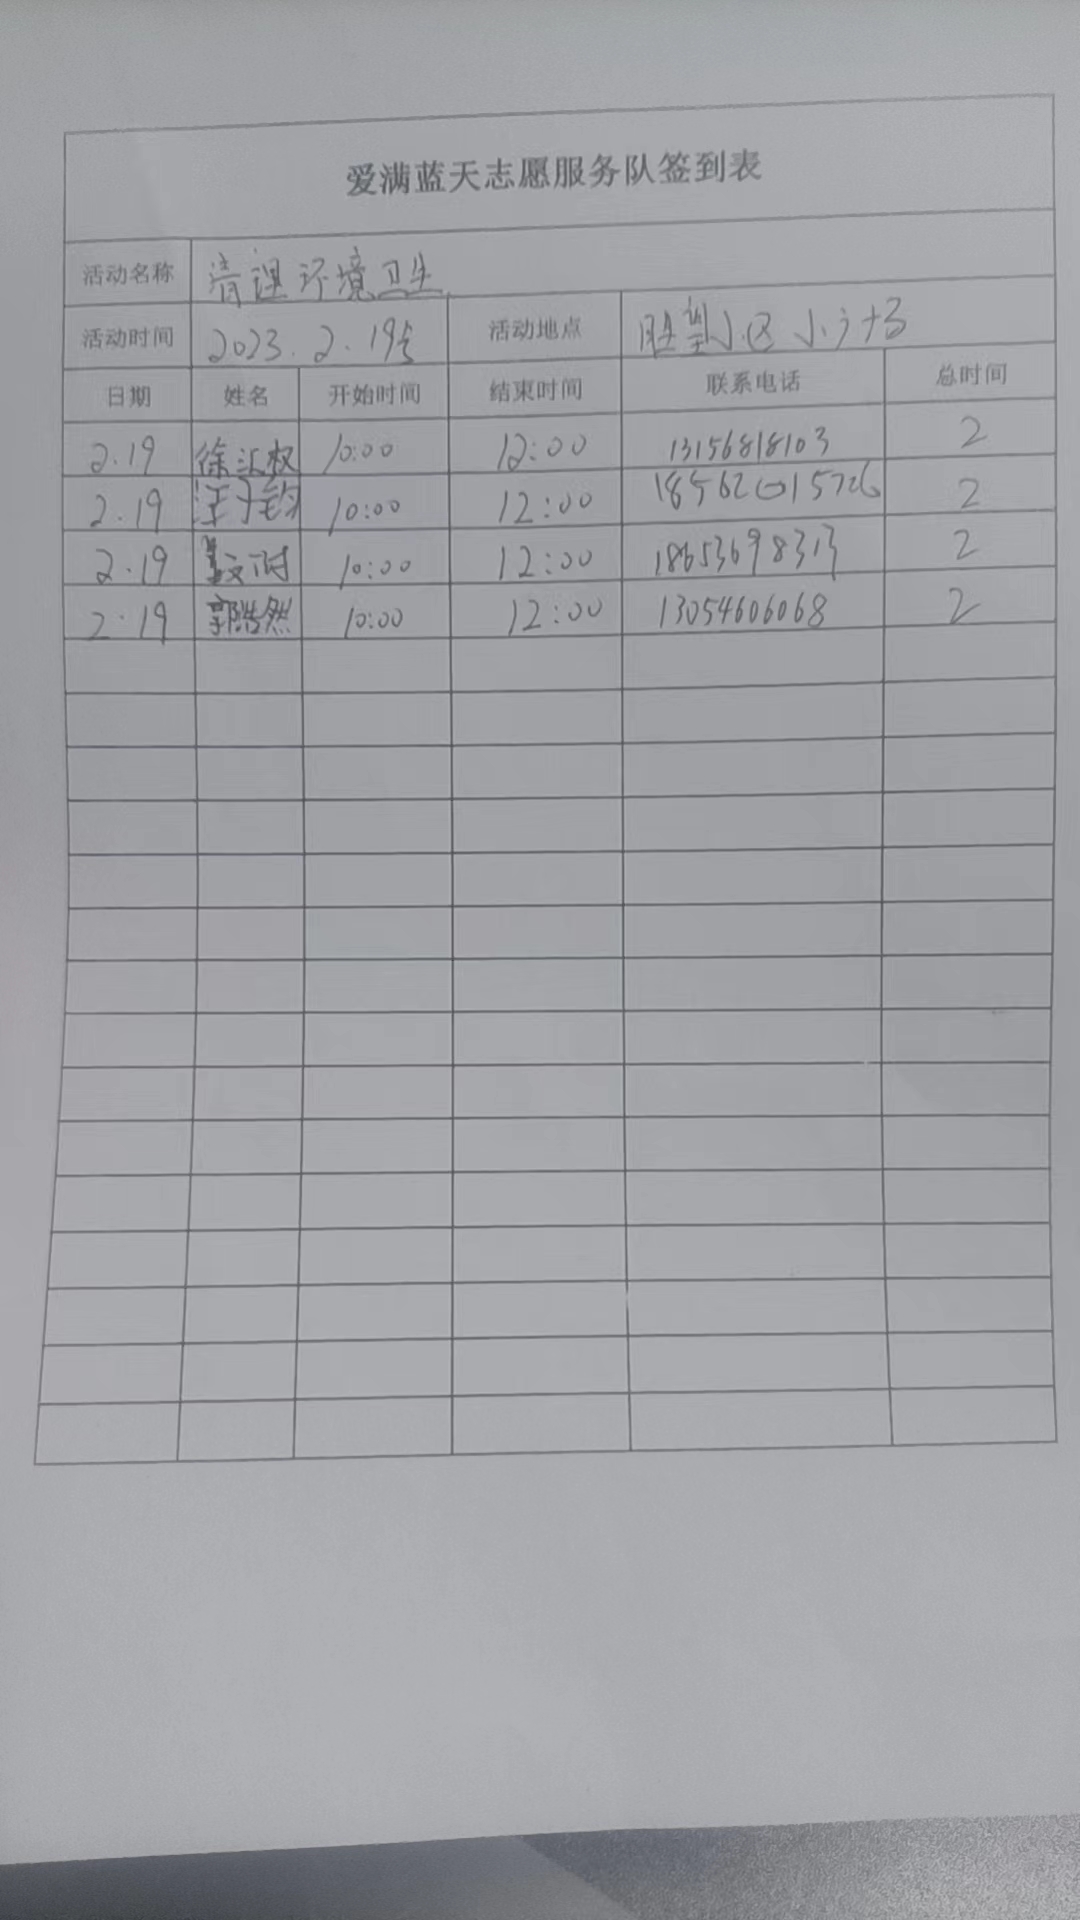 爱满蓝天志愿服务队签到表
活动名称 清理环境卫生
活动时间 2023.2.19号 活动地点 胜望小区小广场
日期 姓名 开始时间 结束时间 联系电话 总时间
2.19 徐汇权 10:00 12:00 13156818103 2
2.19 汪子钧 10:00 12:00 18562015726 2
2.19 10:00 12:00 18653698313 2
2.19 郭浩然 10:00 12:00 13054606068 2